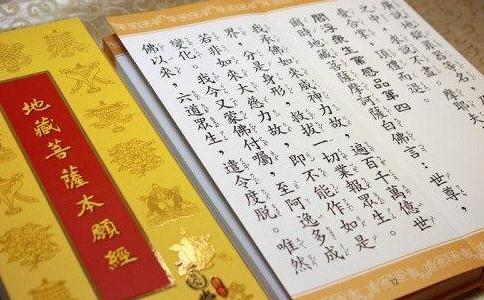 地藏菩薩本願經
說地獄罪器等名，
之中，求說不盡。摩耶夫
憂合掌，頂禮而退。
閻浮眾生業感品第四
爾時地藏菩薩摩訶薩白佛言：世尊，
我承佛如來威神力故，遍百千萬億世
界，分是身形，救拔一切業報眾生。
若非如來大慈力故，即不能作如是
變化。我今又蒙佛付囑，至阿逸多成
佛以來，六道眾生，遣令度脫。唯然
12